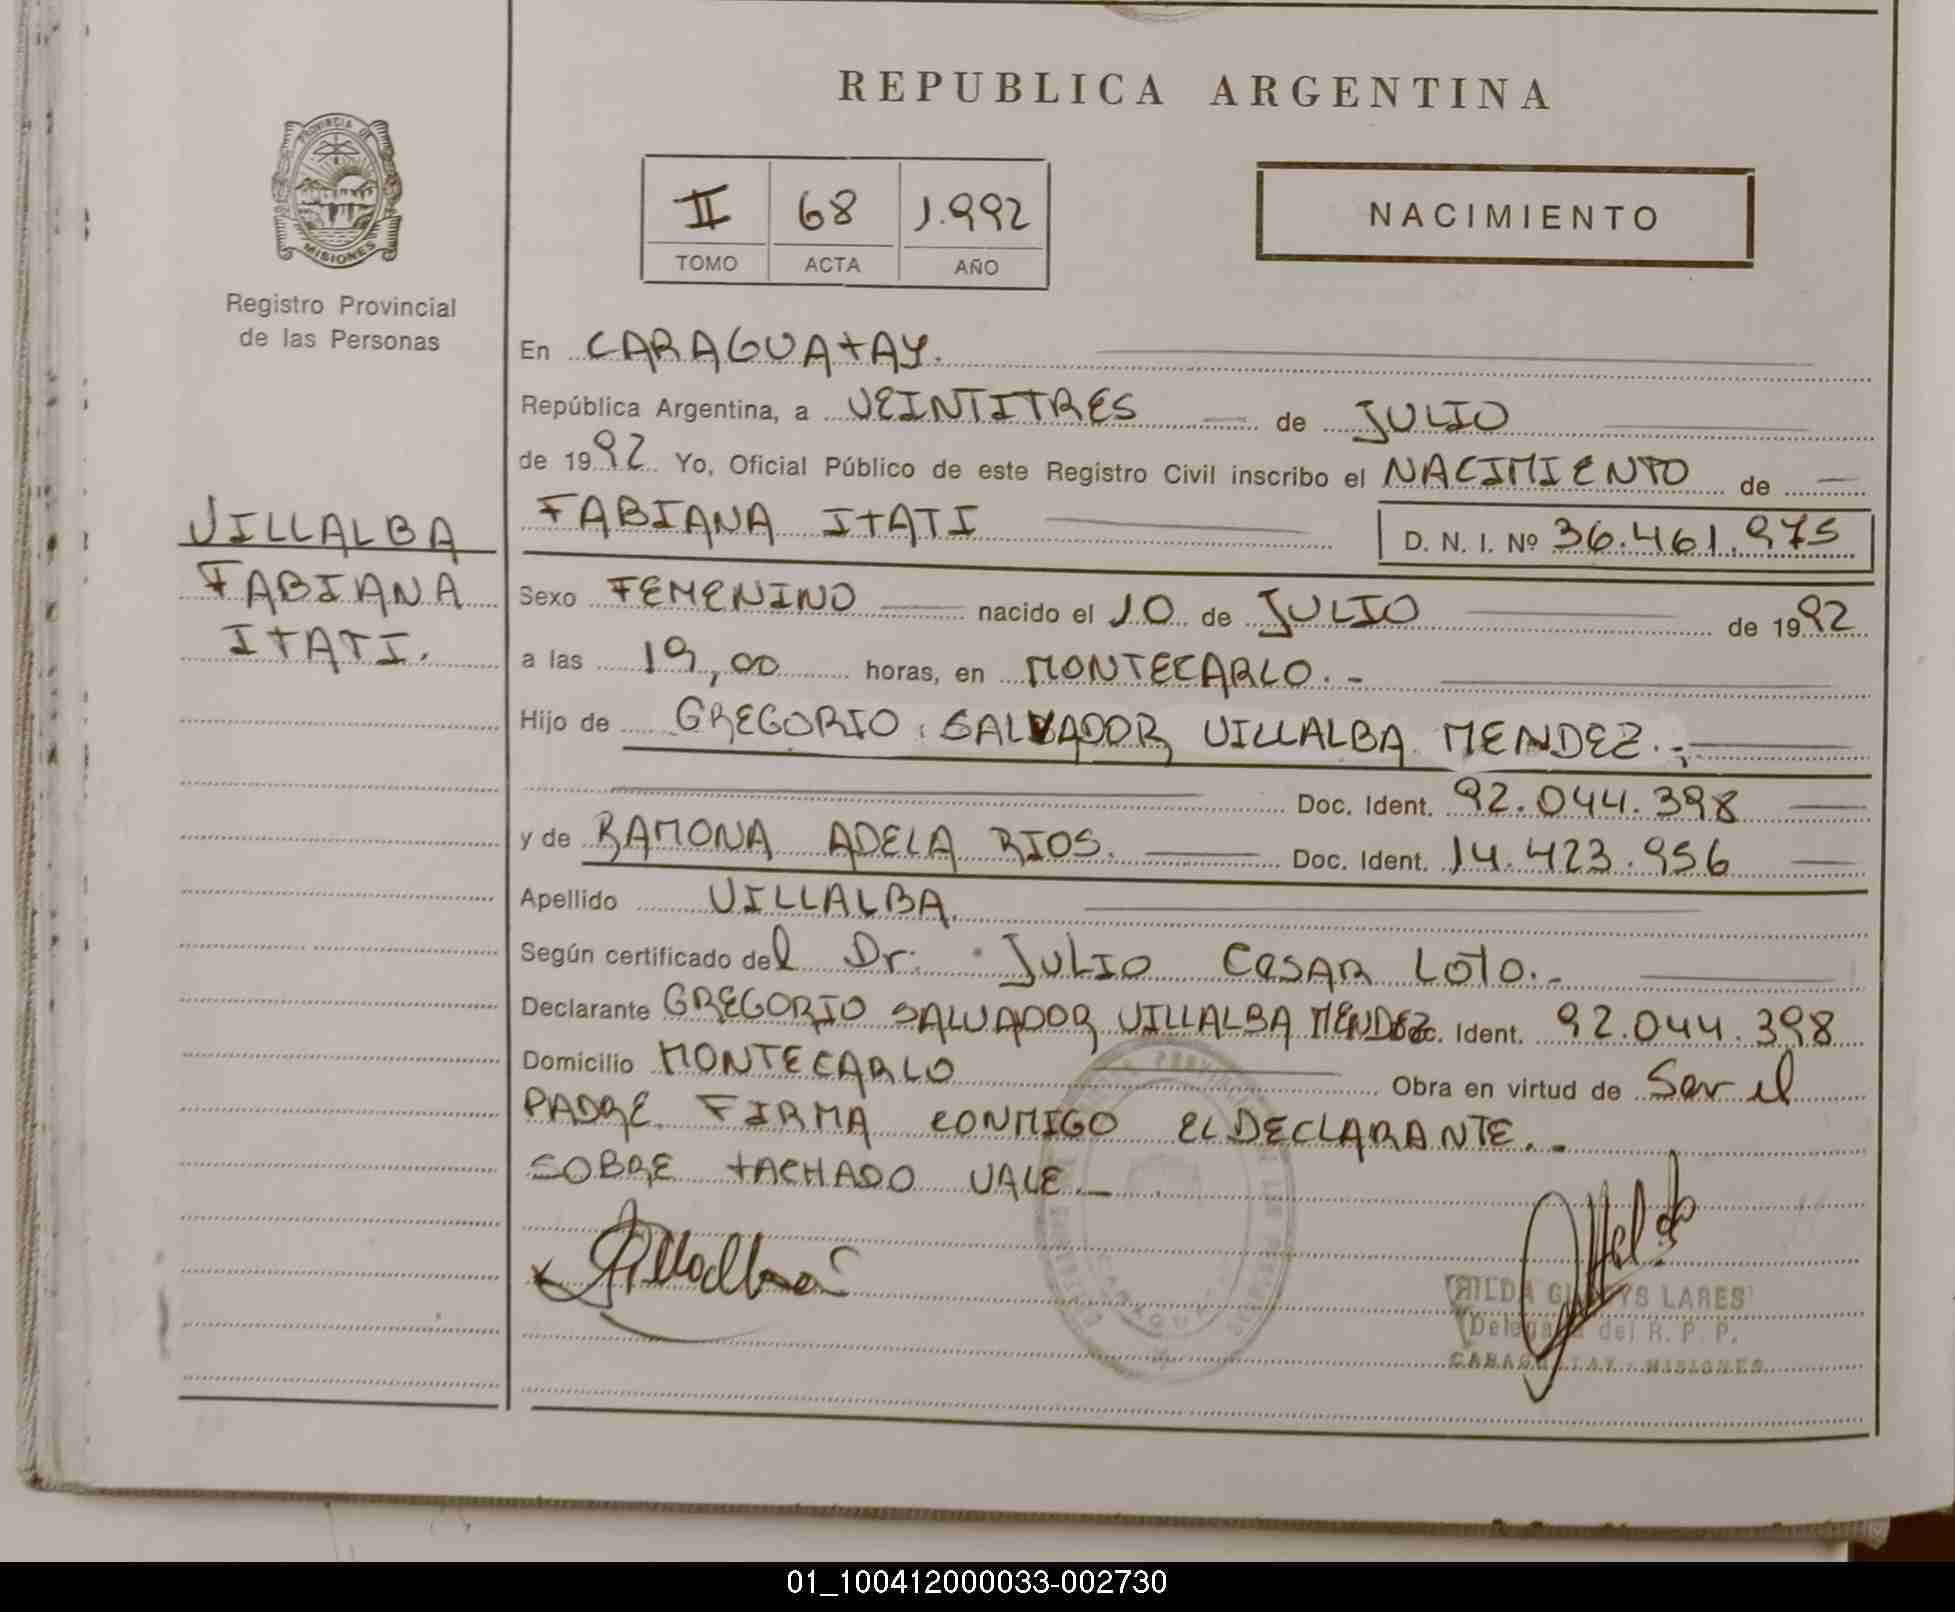 REPUBLICA ARGENTINA
PROVINCIA DE
MISIONES
Registro Provincial
de las Personas
II 68 1.992
TOMO ACTA AÑO
NACIMIENTO
VILLALBA
FABIANA
ITATI.
En CARAGUATAY.
República Argentina, a VEINTITRES de JULIO
de 1992 Yo, Oficial Público de este Registro Civil inscribo el NACIMIENTO de
FABIANA ITATI D. N. I. Nº 36.461.975
Sexo FEMENINO nacido el 10 de JULIO de 1992
a las 19,00 horas, en MONTECARLO.-
Hijo de GREGORIO SALVADOR VILLALBA MENDEZ.-
Doc. Ident. 92.044.398
y de RAMONA ADELA RIOS. Doc. Ident. 14.423.956
Apellido VILLALBA.
Según certificado del Dr. JULIO CESAR LOTO.-
Declarante GREGORIO SALVADOR VILLALBA MENDEZ Doc. Ident. 92.044.398
Domicilio MONTECARLO Obra en virtud de Ser el
PADRE FIRMA CONMIGO EL DECLARANTE.-
SOBRE TACHADO VALE.-
Villalba
HILDA GLADYS LARES
Delegada del R. P. P.
CARAGUATAY - MISIONES
01_100412000033-002730